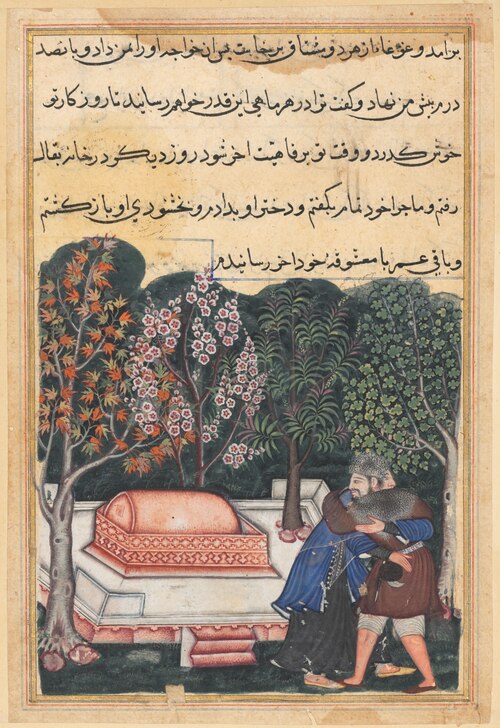 برآمد و غوغا از هر دو مشتاق برخاست بمران خواجه او را من داد و پانصد
درم پیش من نهاد و گفت ترا در هر ماهی این قدر خواهم رسانید تا روزگار تو
خوش گذرد و وقت تو برفاهیت اخر شود روز دیگر در خانه بقال
رفتم و ماجرا خود تمام بگفتم و دختر او بدادم و بخشنودی او باز گشتم
و باقی عمر با معشوقه خود اخر رسانیدم